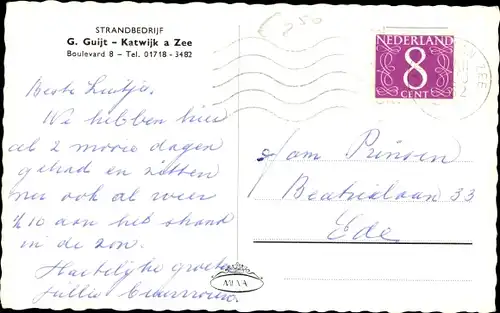 STRANDBEDRIJF
G. Guijt - Katwijk a Zee
Boulevard 8 - Tel. 01718 - 3482
250
NEDERLAND
8
CENT
ZEE
Beste
We hebben hier
al 2 mooie dagen
gehad en zitten
nu ook al weer
½10 aan het strand
in de zon.
Hartelijke groeten
jullie buurvrouw.
Fam Prinsen
Beatrixlaan 33
Ede
MUVA